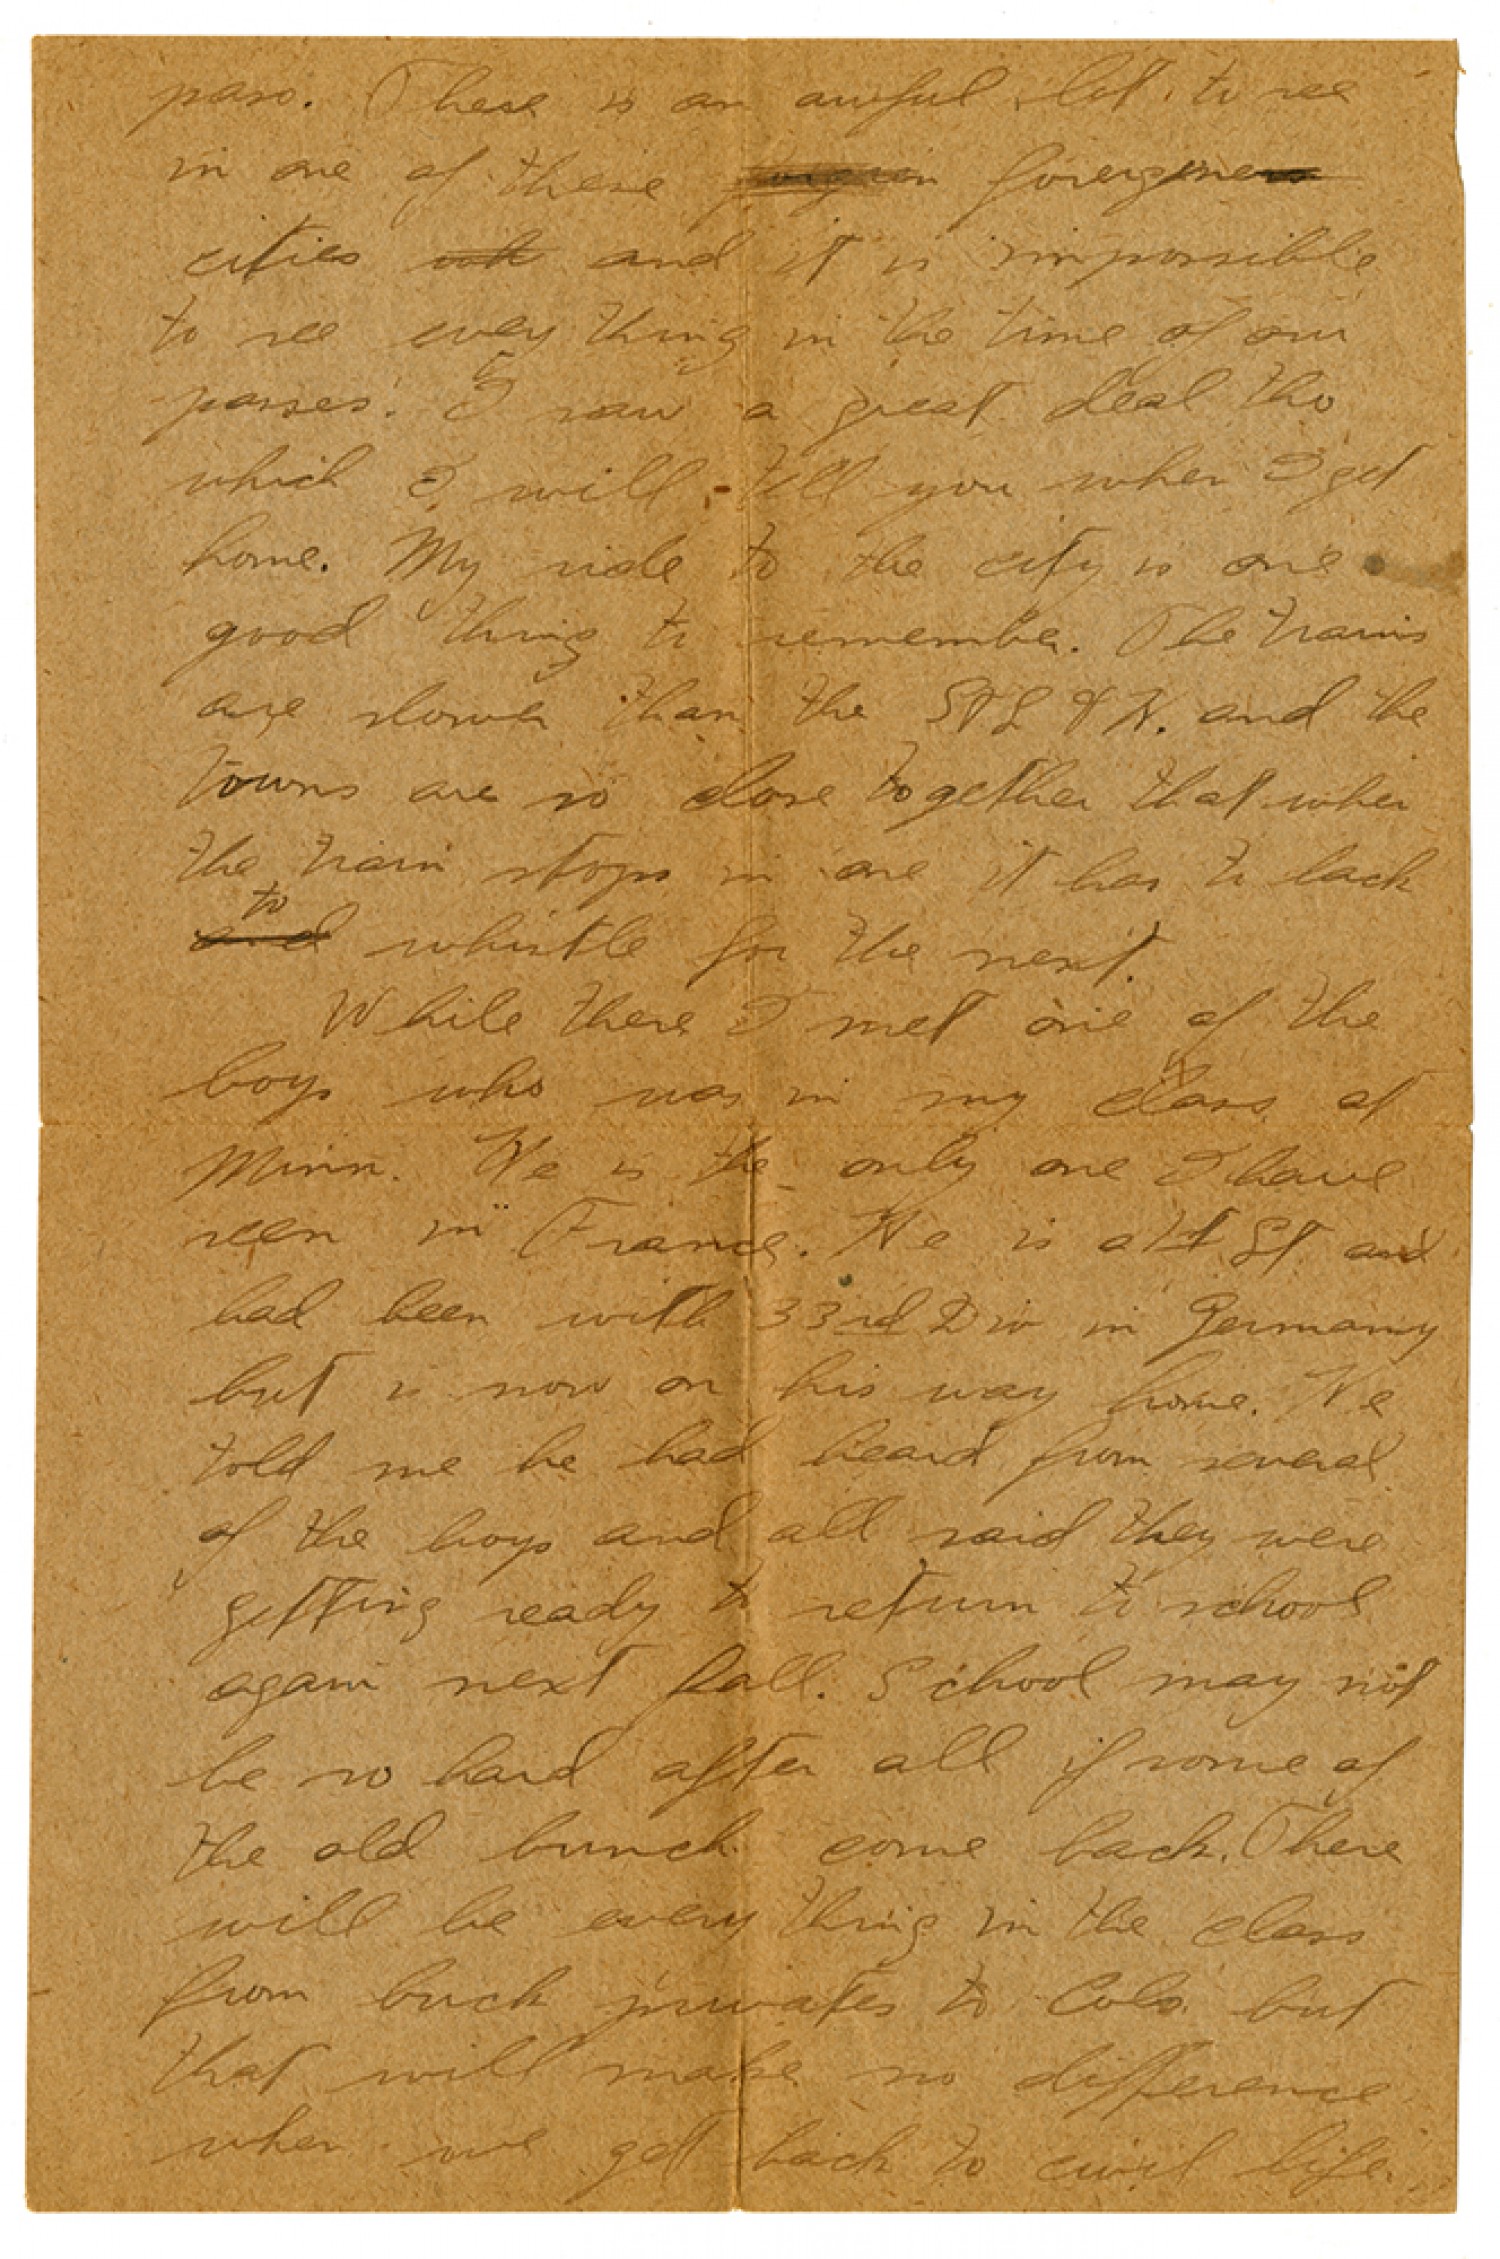 pass. There is an awful lot to see
in one of these foreign
cities and it is impossible
to see every thing in the time of our
passes. I saw a great deal tho
which I will tell you when I get
home. My ride to the city is one
good thing to remember. The trains
are slower than the and the
towns are so close together that when
the train stops in one it has to back
to whistle for the next.
While there I met one of the
boys who was in my class at
Minn. He is the only one I have
seen in France. He is a 1st Lt and
had been with 33rd Div in Germany
but is now on his way home. He
told me he had heard from several
of the boys and all said they were
getting ready to return to school
again next fall. School may not
be so hard after all if some of
the old bunch come back. There
will be every thing in the class
from buck privates to Cols. but
that will make no difference
when we get back to civil life.